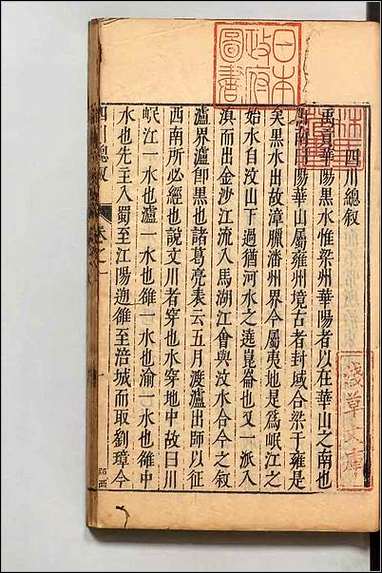 四川總敘
禹貢華陽黑水惟梁州華陽者以在華山之南也
陽華山屬雍州境古者封域合梁于雍是
矣黑水出故漳臘潘州界今屬夷地是爲岷江之
始水自汶山下過猶河水之遶崑崙也又一派入
滇而出金沙江流入馬湖江會與汶水合今之敘
瀘界瀘卽黑也諸葛亮表云五月渡瀘出師以征
西南所必經也說文川者穿也水穿地中故曰川
岷江一水也瀘一水也雒一水也渝一水也雒中
水也先主入蜀至江陽遡雒至涪城而取劉璋今
四川總敘
卷之一
日本政府圖書
淺草文庫